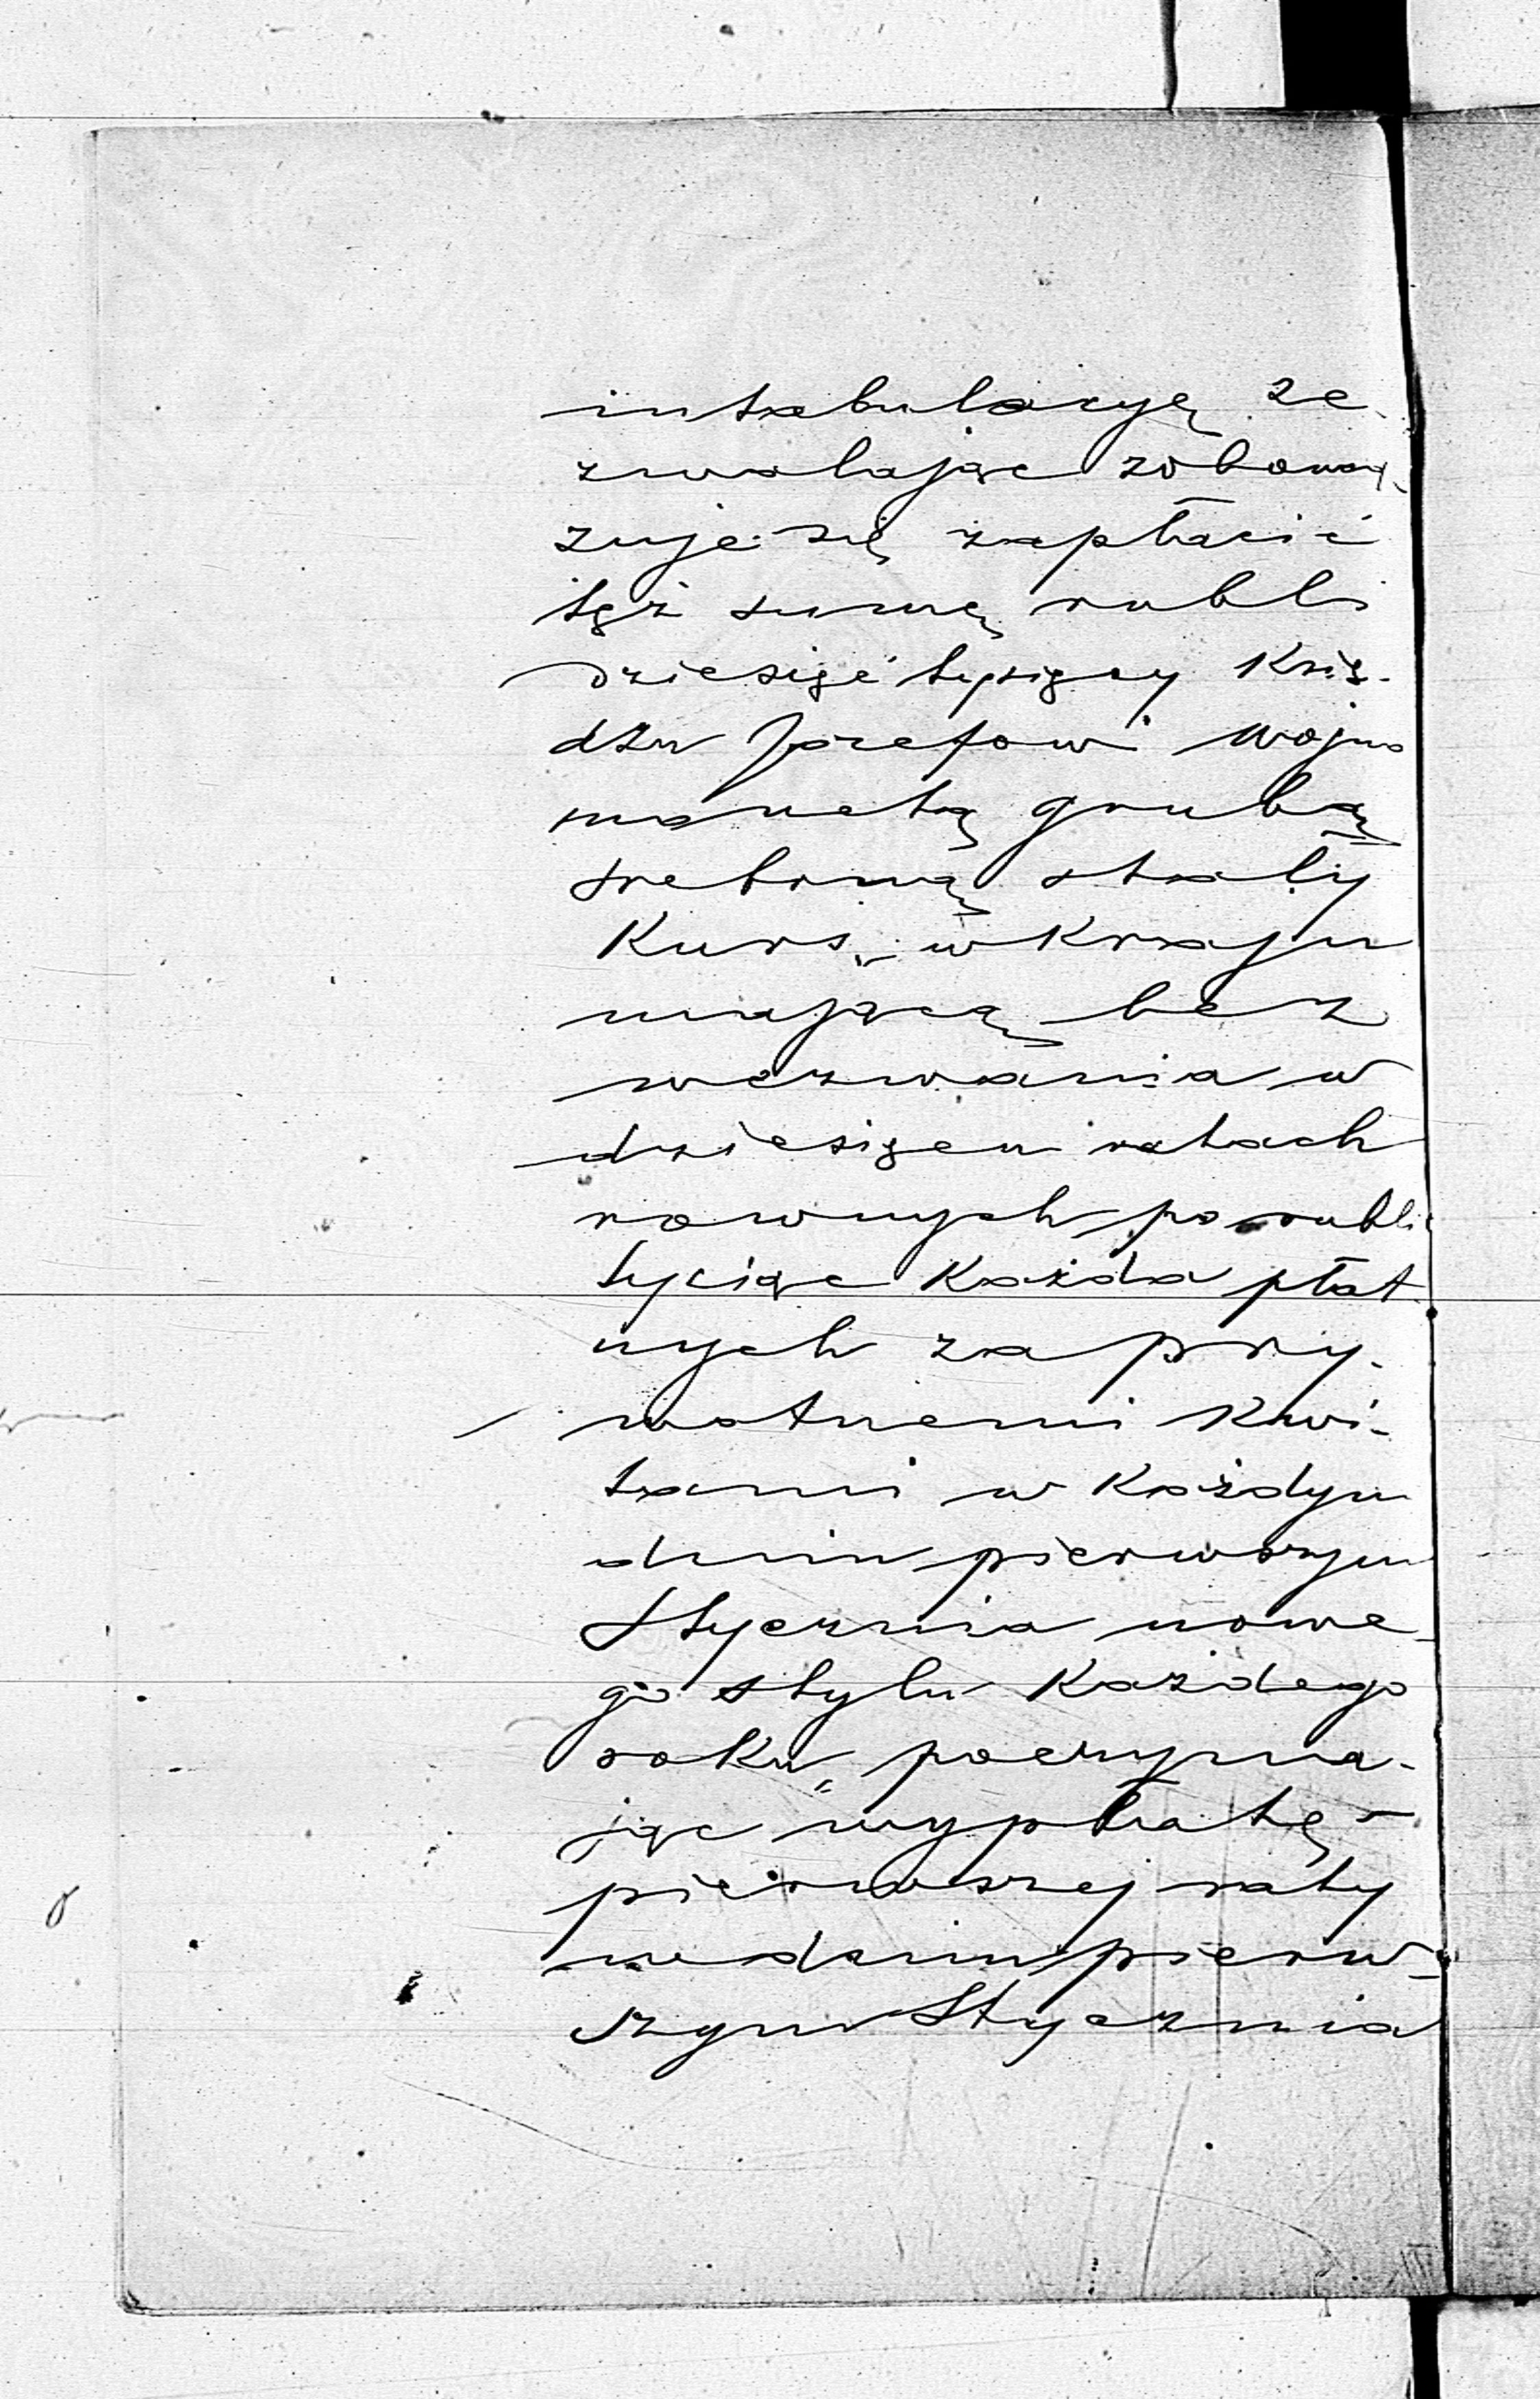 intabulacyę ze-
zwalając zobowią-
zuje się zapłacić
tęż sumę rubli
dziesięć tysięcy Księ-
dzu Józefowi Wojno
monetą grubą
srebrną stały
Kurs „w Kraju
mającą bez
wezwania w
dziesięciu ratach
rownych po rubli
tysiąc Każda płat
nych za pry-
watnemi Kwi-
tami w Każdym
dniu pierwszym
Stycznia nowe-
go stylu Każdego
roku „poczyna-
jąc wypłatę
pierwszej raty
w dniu pierw-
szym Stycznia